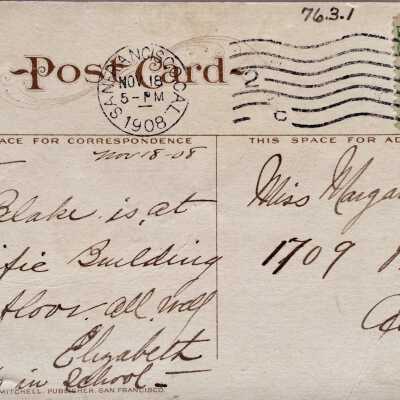 76.3.1
Post Card
SAN FRANCISCO, CAL.
NOV 18
5-PM
1908
2
C
ACE FOR CORRESPONDENCE
THIS SPACE FOR AD
Nov 18-08
Blake is at
Miss Margar
ific Building
1709
floor. all well
Elizabeth
in School
MITCHELL, PUBLISHER, SAN FRANCISCO.